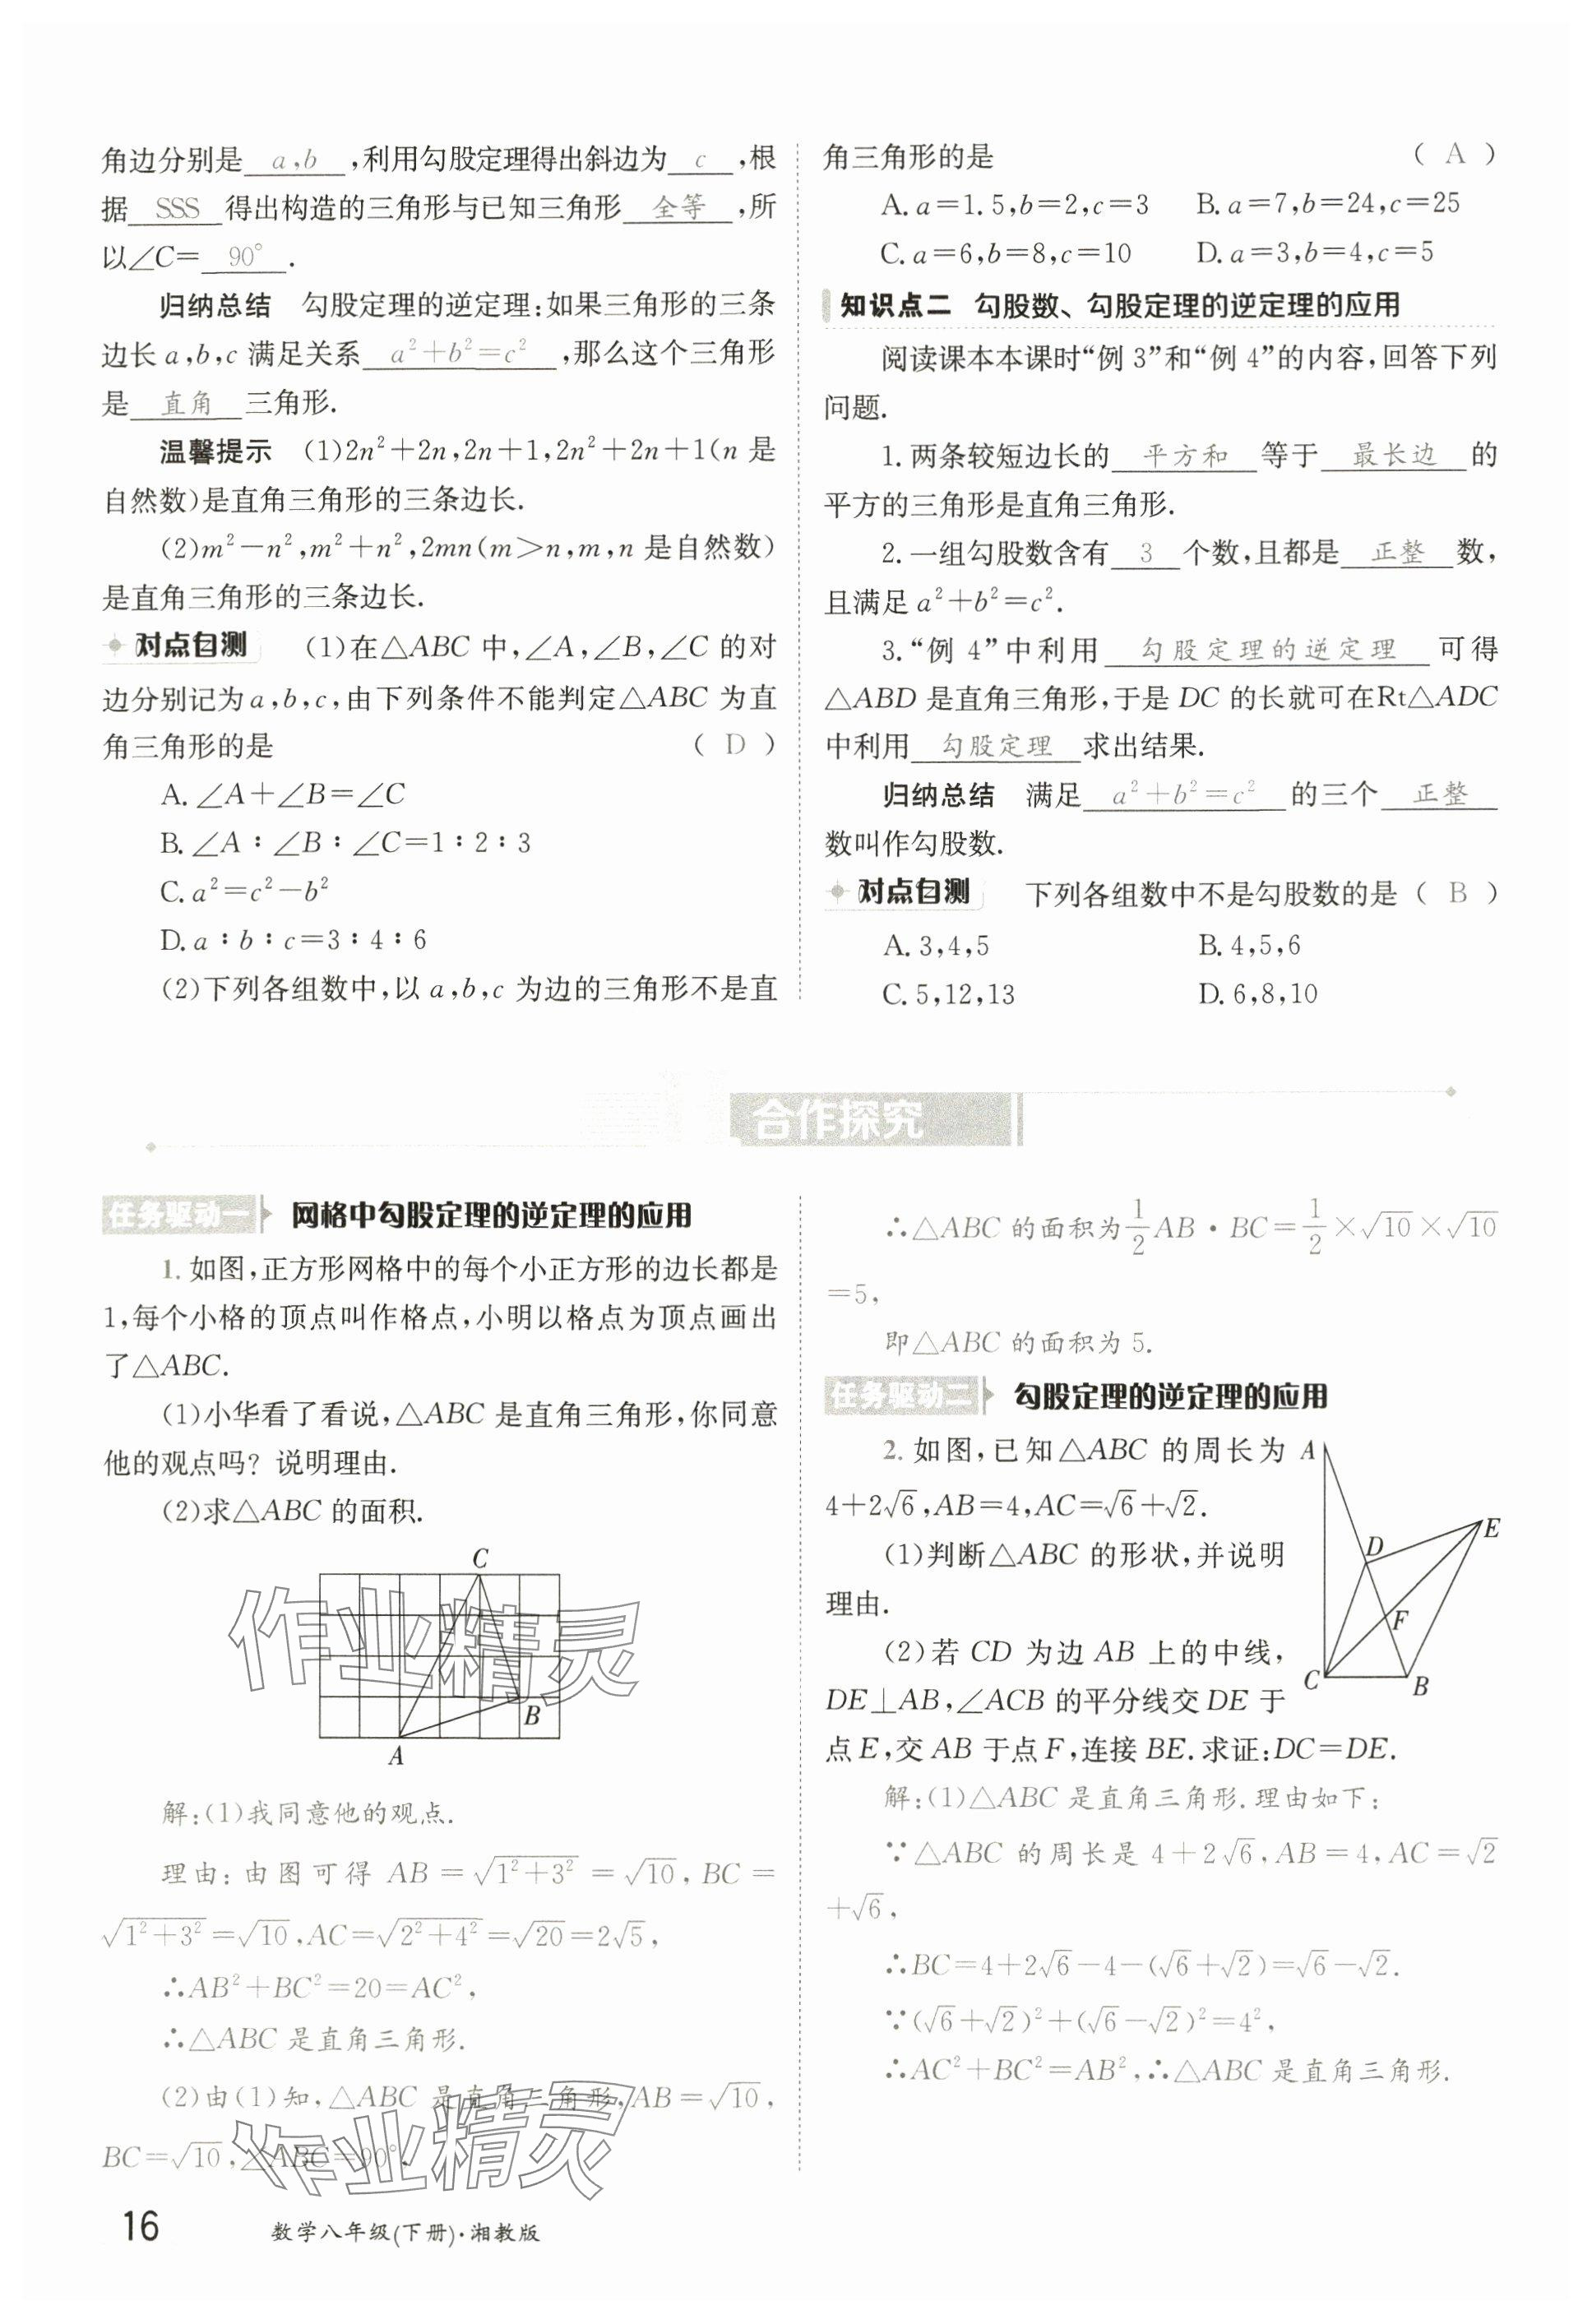 角边分别是 a,b ,利用勾股定理得出斜边为 c ,根
据 SSS 得出构造的三角形与已知三角形 全等 ,所
以∠C= 90° .
归纳总结 勾股定理的逆定理:如果三角形的三条
边长 a,b,c 满足关系 a²+b²=c² ,那么这个三角形
是 直角 三角形.
温馨提示 (1)2n²+2n,2n+1,2n²+2n+1(n 是
自然数)是直角三角形的三条边长.
(2)m²-n²,m²+n²,2mn(m>n,m,n 是自然数)
是直角三角形的三条边长.
对点自测 (1)在△ABC 中,∠A,∠B,∠C 的对
边分别记为 a,b,c,由下列条件不能判定△ABC 为直
角三角形的是 ( D )
A.∠A+∠B=∠C
B.∠A∶∠B∶∠C=1∶2∶3
C.a²=c²-b²
D.a∶b∶c=3∶4∶6
(2)下列各组数中,以 a,b,c 为边的三角形不是直
角三角形的是 ( A )
A.a=1.5,b=2,c=3 B.a=7,b=24,c=25
C.a=6,b=8,c=10 D.a=3,b=4,c=5
知识点二 勾股数、勾股定理的逆定理的应用
阅读课本本课时“例 3”和“例 4”的内容,回答下列
问题.
1.两条较短边长的 平方和 等于 最长边 的
平方的三角形是直角三角形.
2.一组勾股数含有 3 个数,且都是 正整 数,
且满足 a²+b²=c².
3.“例 4”中利用 勾股定理的逆定理 可得
△ABD 是直角三角形,于是 DC 的长就可在Rt△ADC
中利用 勾股定理 求出结果.
归纳总结 满足 a²+b²=c² 的三个 正整
数叫作勾股数.
对点自测 下列各组数中不是勾股数的是 ( B )
A.3,4,5 B.4,5,6
C.5,12,13 D.6,8,10
合作探究
任务驱动一 网格中勾股定理的逆定理的应用
1.如图,正方形网格中的每个小正方形的边长都是
1,每个小格的顶点叫作格点,小明以格点为顶点画出
了△ABC.
(1)小华看了看说,△ABC 是直角三角形,你同意
他的观点吗? 说明理由.
(2)求△ABC 的面积.
C
B
A
作业精灵
解:(1)我同意他的观点.
理由:由图可得 AB=√(1²+3²)=√10,BC=
√(1²+3²)=√10,AC=√(2²+4²)=√20=2√5,
∴AB²+BC²=20=AC²,
∴△ABC 是直角三角形.
(2)由(1)知,△ABC 是直角三角形,AB=√10,
BC=√10,∠ABC=90°.
作业精灵
∴△ABC 的面积为 1/2 AB·BC=1/2×√10×√10
=5,
即△ABC 的面积为 5.
任务驱动二 勾股定理的逆定理的应用
2.如图,已知△ABC 的周长为
4+2√6,AB=4,AC=√6+√2.
(1)判断△ABC 的形状,并说明
理由.
(2)若 CD 为边 AB 上的中线,
DE⊥AB,∠ACB 的平分线交 DE 于
点 E,交 AB 于点 F,连接 BE.求证:DC=DE.
A
E
D
F
C
B
解:(1)△ABC 是直角三角形.理由如下:
∵△ABC 的周长是 4+2√6,AB=4,AC=√2
+√6,
∴BC=4+2√6-4-(√6+√2)=√6-√2.
∵(√6+√2)²+(√6-√2)²=4²,
∴AC²+BC²=AB²,∴△ABC 是直角三角形.
16 数学八年级(下册)·湘教版